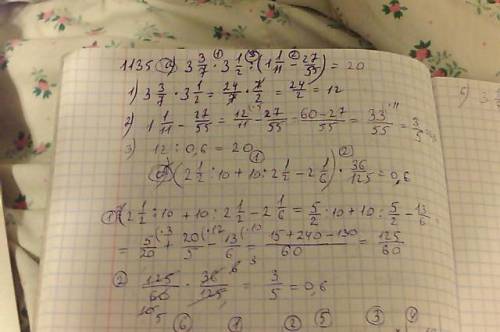 1135 а) 3 3/7 · 3 1/2 : (1 1/11 - 27/55) = 20
1) 3 3/7 · 3 1/2 = 24/7 · 7/2 = 24/2 = 12
2) 1 1/11 - 27/55 = 12/11 - 27/55 = 60-27/55 = 33/55 = 3/5
3) 12 : 0,6 = 20
(2 1/2 : 10 + 10 : 2 1/2 - 2 1/6) · 36/125 = 0,6
① 2 1/2 : 10 + 10 : 2 1/2 - 2 1/6 = 5/2 : 10 + 10 : 5/2 - 13/6
= 5/20 + 20/5 - 13/6 = 15+240-130/60 = 125/60
② 125/60 · 36/125 = 3/5 = 0,6